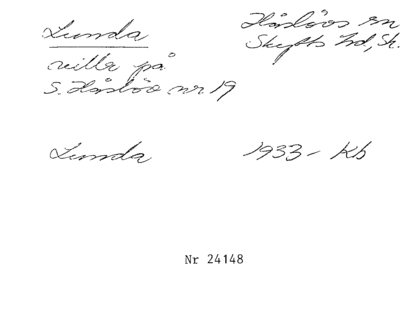 Lunda
Håslövs sn
Skytts hd, Sk.
villa på
S. Håslöv nr 19
Lunda 1933- Kb
Nr 24148